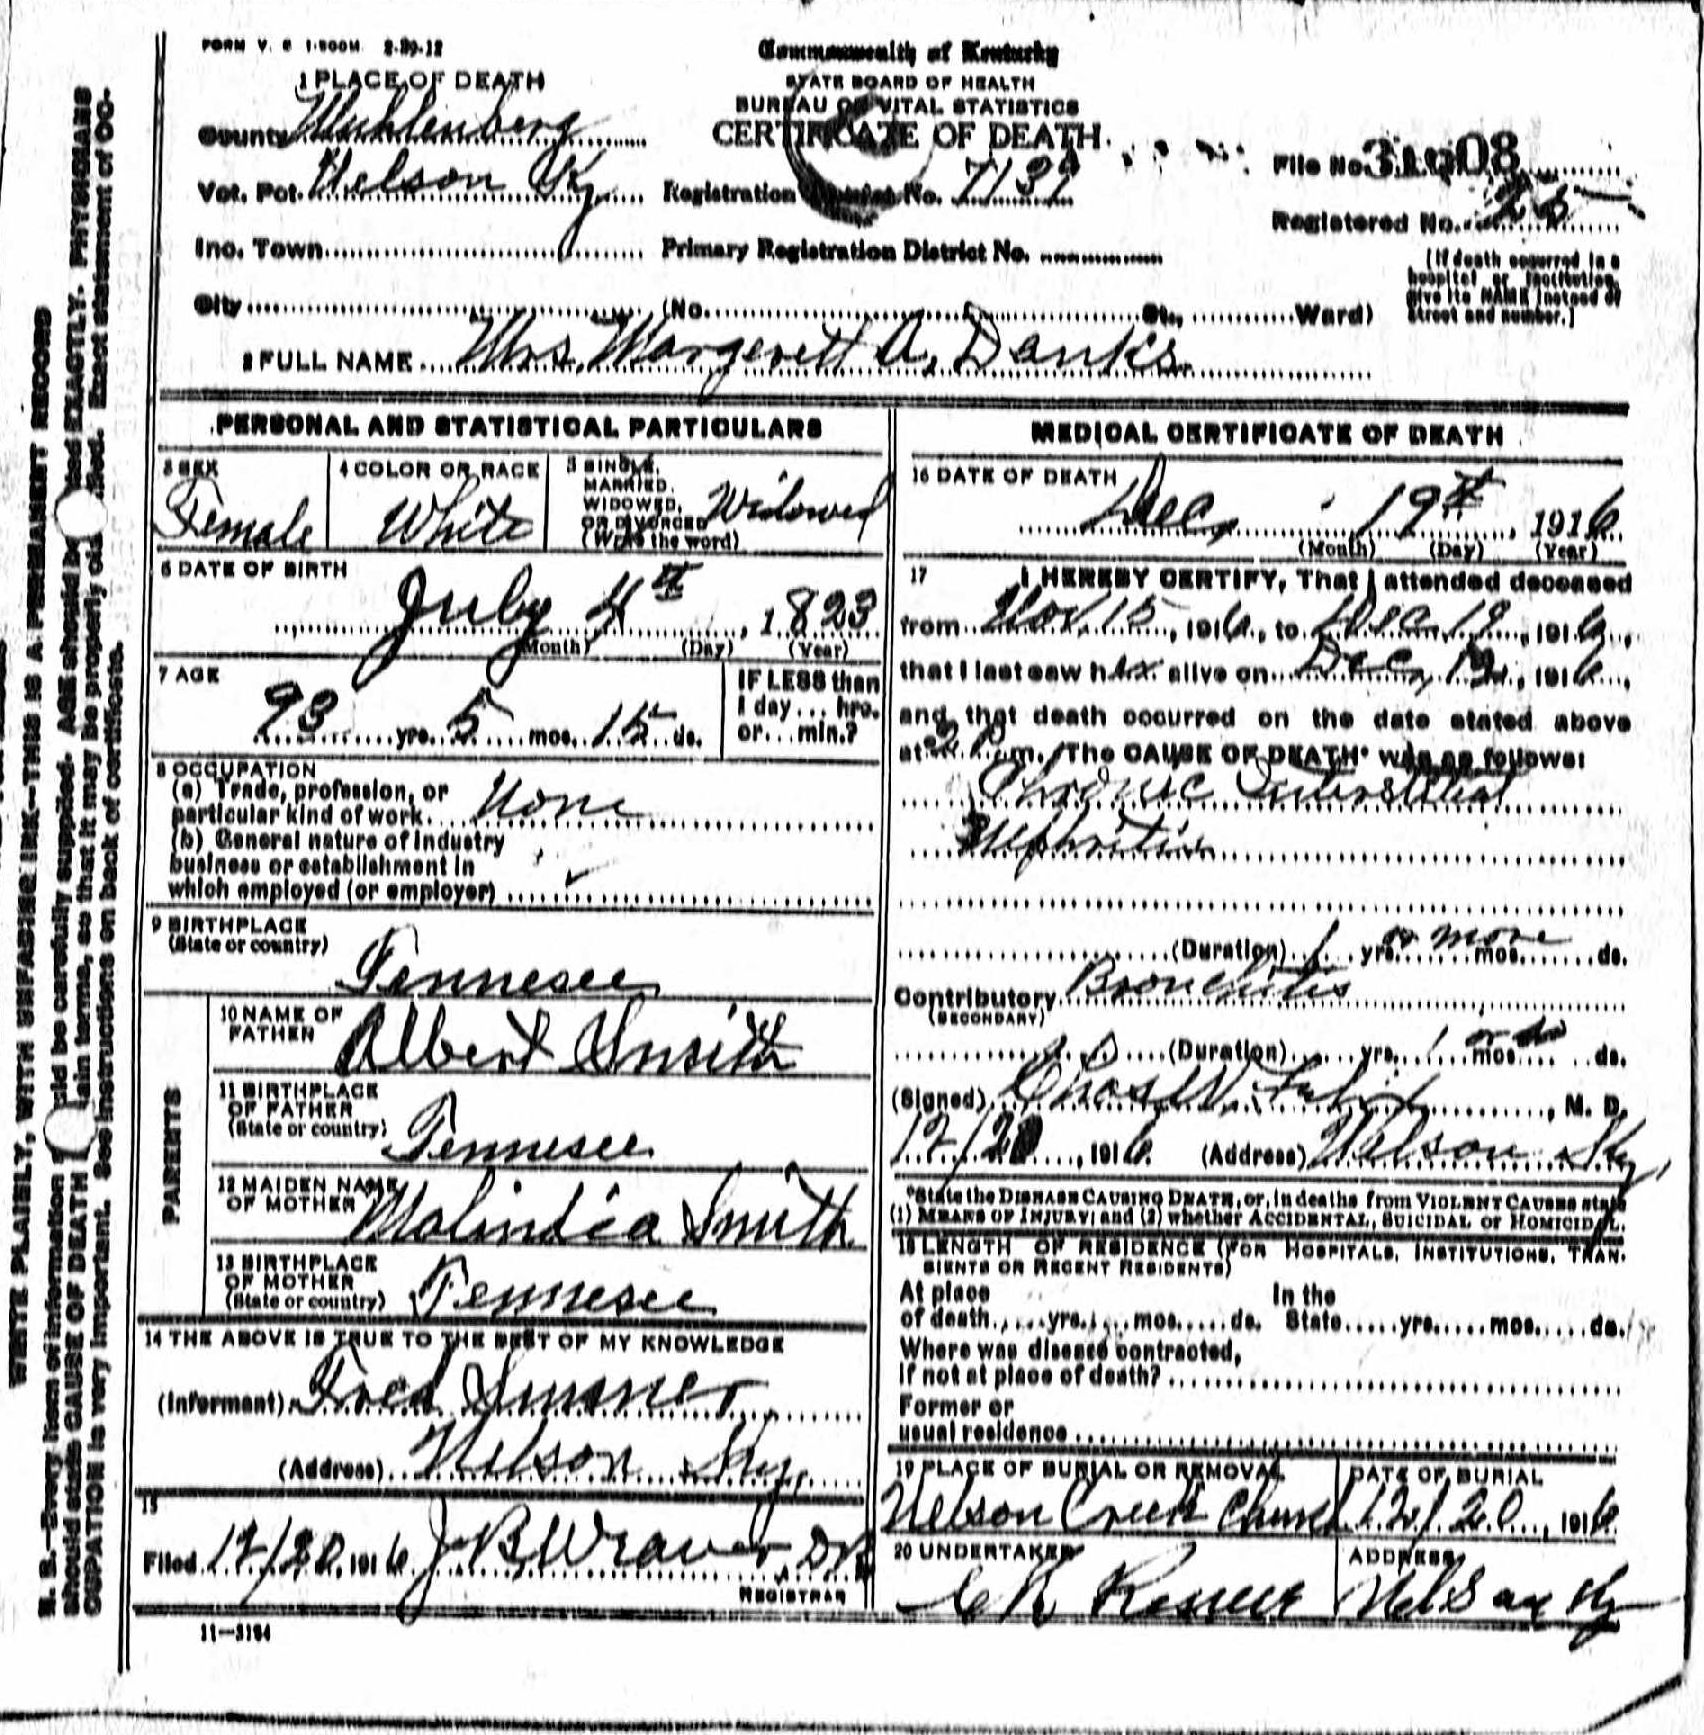 FORM V. S. 1-500M 2-29-12
Commonwealth of Kentucky
STATE BOARD OF HEALTH
BUREAU OF VITAL STATISTICS
CERTIFICATE OF DEATH
1 PLACE OF DEATH
County Muhlenberg
Vot. Pct. Nelson Ky
Registration District No. 7139
File No. 31908
Registered No. 25
Inc. Town
Primary Registration District No.
City (No. St., Ward)
(If death occurred in a hospital or institution, give its NAME instead of street and number.)
2 FULL NAME Mrs. Margerett A. Danks
PERSONAL AND STATISTICAL PARTICULARS
3 SEX
Female
4 COLOR OR RACE
White
5 SINGLE, MARRIED, WIDOWED, OR DIVORCED (Write the word)
Widowed
6 DATE OF BIRTH
July 4th, 1823
(Month) (Day) (Year)
7 AGE
93 yrs. 5 mos. 15 ds.
IF LESS than 1 day... hrs. or... min.?
8 OCCUPATION
(a) Trade, profession, or particular kind of work None
(b) General nature of industry business or establishment in which employed (or employer)
9 BIRTHPLACE
(State or country)
Tennesee
PARENTS
10 NAME OF FATHER
Albert Smith
11 BIRTHPLACE OF FATHER
(State or country)
Tennesee
12 MAIDEN NAME OF MOTHER
Malindia Smith
13 BIRTHPLACE OF MOTHER
(State or country)
Tennesee
14 THE ABOVE IS TRUE TO THE BEST OF MY KNOWLEDGE
(Informant) Fred
(Address) Nelson Ky,
15
Filed 12/20, 1916 J. B. Weaver
REGISTRAR
11-3184
MEDICAL CERTIFICATE OF DEATH
16 DATE OF DEATH
Dec, 19th, 1916
(Month) (Day) (Year)
17 I HEREBY CERTIFY, That I attended deceased
from Nov 15, 1916, to Dec 19, 1916,
that I last saw her alive on Dec, 19, 1916,
and that death occurred on the date stated above
at m. The CAUSE OF DEATH* was as follows:
Chronic Interstitial
Nephritis
(Duration) 1 yrs. or more mos. ds.
Contributory Bronchitis
(SECONDARY)
(Duration) yrs. 1 mos. ds.
(Signed) Chas W. , M. D.
12/20, 1916 (Address) Nelson Ky,
*State the DISEASE CAUSING DEATH, or, in deaths from VIOLENT CAUSES state
(1) MEANS OF INJURY; and (2) whether ACCIDENTAL, SUICIDAL or HOMICIDAL.
18 LENGTH OF RESIDENCE (FOR HOSPITALS, INSTITUTIONS, TRAN-
SIENTS OR RECENT RESIDENTS)
At place of death yrs. mos. ds.
In the State yrs. mos. ds.
Where was disease contracted,
If not at place of death?
Former or
usual residence
19 PLACE OF BURIAL OR REMOVAL
Nelson Creek Church
DATE OF BURIAL
12/20, 1916
20 UNDERTAKER
ADDRESS
Nelson Ky
WRITE PLAINLY, WITH UNFADING INK—THIS IS A PERMANENT RECORD
N. B.—Every item of information should be carefully supplied. AGE should be stated EXACTLY. PHYSICIANS
should state CAUSE OF DEATH in plain terms, so that it may be properly classified. Exact statement of OC-
CUPATION is very important. See instructions on back of certificate.